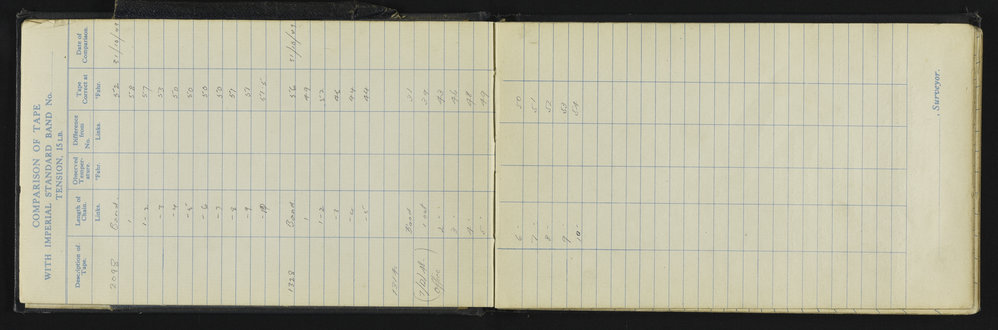 COMPARISON OF TAPE
WITH IMPERIAL STANDARD BAND No.
TENSION, 15 LB.
Description of Tape. Length of Chain. Observed Temperature. Difference from No. Tape Correct at Date of Comparison.
Links. °Fahr. Links. °Fahr.
2098 Band. 52
1 58
1-2 57
-3 53
-4 50
-5 50
-6 50
-7 50
-8
-9
-10
1328 Band 56
1 49
1-2 52
-3 46
-4 44
-5 44
Band 31
1 out 39
office 2 43
3 46
4 48
5 49
6 50
7 51
8 52
9 53
10 54
Surveyor.